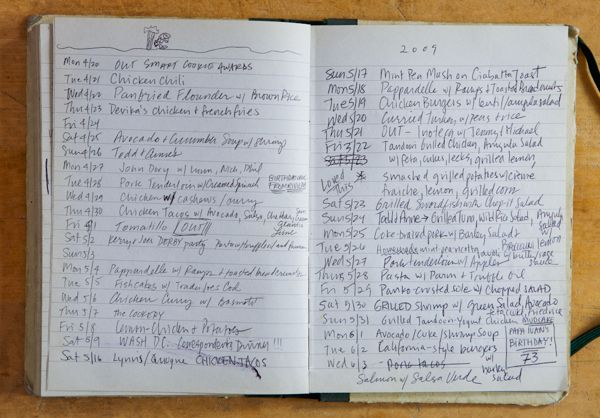 Mon 4/20 OUT SMART COOKIE AWARDS
Tue 4/21 Chicken Chili
Wed 4/22 Panfried Flounder w/ Brown Rice
Thu 4/23 Devika's chicken + french fries
Fri 4/24
Sat 4/25 Avocado + Cucumber Soup w/ shrimp
Sun 4/26 Todd + Anne
Mon 4/27 John Dory w/ Nick, Phil
Tue 4/28 Pork Tenderloin w/ Creamed spinach BIRTHDAY DINNER
Wed 4/29 Chicken w/ cashews / curry
Thu 4/30 Chicken Tacos w/ Avocado, Salsa, Cheddar, Sour Cream
Fri 5/1 Tomatillo OUT!!
Sat 5/2 Kerry + Joes DERBY party
Sun 5/3
Mon 5/4 Pappardelle w/ Ramps + toasted breadcrumbs
Tue 5/5 Fishcakes w/ Trader Joes Cod
Wed 5/6 Chicken Curry w/ Basmati
Thu 5/7 the COOKERY
Fri 5/8 Lemon-Chicken + Potatoes
Sat 5/9 WASH DC. Correspondents Dinner!!!
Sat 5/16 Lynns/Quogue CHICKEN TACOS
2009
Sun 5/17 Mint Pea Mash on Ciabatta Toast
Mon 5/18 Pappardelle w/ Ramps + Toasted Breadcrumbs
Tue 5/19 Chicken Burgers w/ arugula salad
Wed 5/20 Curried Turkey w/ peas + rice
Thu 5/21 OUT - Inoteca w/ Jenny + Michael
Fri 5/22 Tandoori Grilled Chicken, Arugula Salad
Sat 5/23 w/ feta, cukes, leeks, grilled lemon
Loved This * smashed grilled potatoes w/ creme
fraiche, lemon, grilled corn
Sat 5/23 Grilled Swordfish w/ Salad
Sun 5/24 Todd/Anne → Grilled Tuna, Wild Rice Salad, Arugula salad w/ lemon
Mon 5/25 Coke-braised pork w/ Barley Salad
Tue 5/26 Homemade ravioli w/ butter/sage sauce
Wed 5/27 Pork Tenderloin w/ Apples
Thurs 5/28 Pasta w/ Parm + Truffle Oil
Fri 5/29 Panko crusted sole w/ Chopped SALAD
Sat 5/30 GRILLED Shrimp w/ Green Salad, Avocado
Sun 5/31 Grilled Tandoori-Yogurt Chicken
Mon 6/1 Avocado/Cuke/Shrimp Soup
Tue 6/2 California-style burgers
Wed 6/3 Pork Tacos
Salmon w/ Salsa Verde w/ barley salad
PAPA IVAN'S
BIRTHDAY!
73